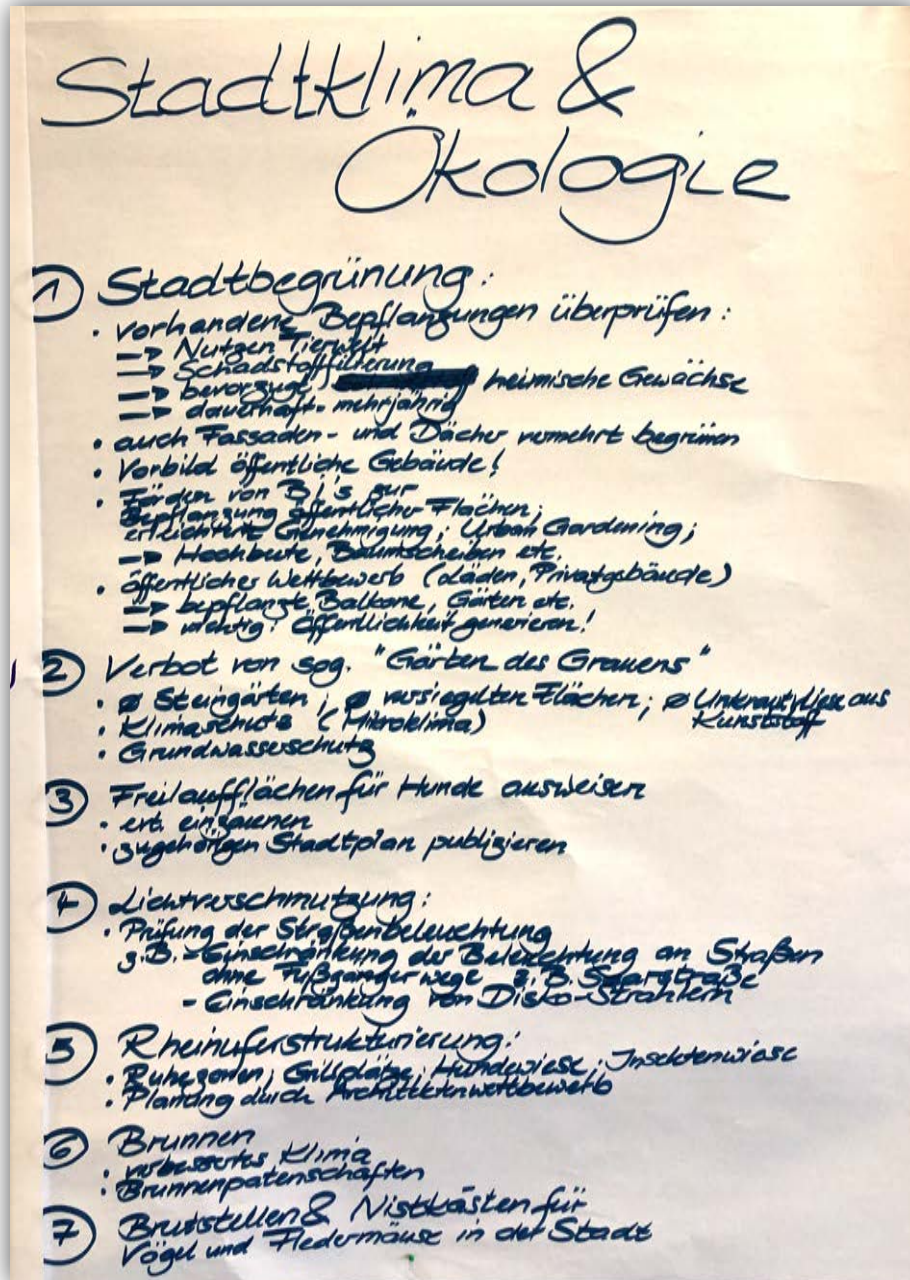 Stadtklima &
Ökologie
① Stadtbegrünung:
• vorhandene Bepflanzungen überprüfen:
→ Nutzen Tierwelt
→ Schadstofffilterung
→ bevorzugt heimische Gewächse
→ dauerhaft - mehrjährig
• auch Fassaden- und Dächer vermehrt begrünen
• Vorbild öffentliche Gebäude!
• Fördern von B.I.'s zur
Bepflanzung öffentlicher Flächen;
erleichterte Genehmigung; Urban Gardening;
→ Hochbeete, Baumscheiben etc.
• öffentlicher Wettbewerb (Läden, Privatgebäude)
→ bepflanzte Balkone, Gärten etc.
→ wichtig: Öffentlichkeit generieren!
② Verbot von sog. "Gärten des Grauens"
• ø Steingärten; ø versiegelten Flächen; ø Unkrautvliese aus
Kunststoff
• Klimaschutz (Mikroklima)
• Grundwasserschutz
③ Freilaufflächen für Hunde ausweisen
• evt. einzäunen
• zugehörigen Stadtplan publizieren
④ Lichtverschmutzung:
• Prüfung der Straßenbeleuchtung
z.B. - Einschränkung der Beleuchtung an Straßen
ohne Fußgängerwege z.B. Saarstraße
- Einschränkung von Disko-Strahlern
⑤ Rheinuferstrukturierung:
• Ruhezonen; Grillplätze; Hundewiese; Insektenwiese
• Planung durch Architektenwettbewerb
⑥ Brunnen
• verbessertes Klima
• Brunnenpatenschaften
⑦ Brutstellen & Nistkästen für
Vögel und Fledermäuse in der Stadt